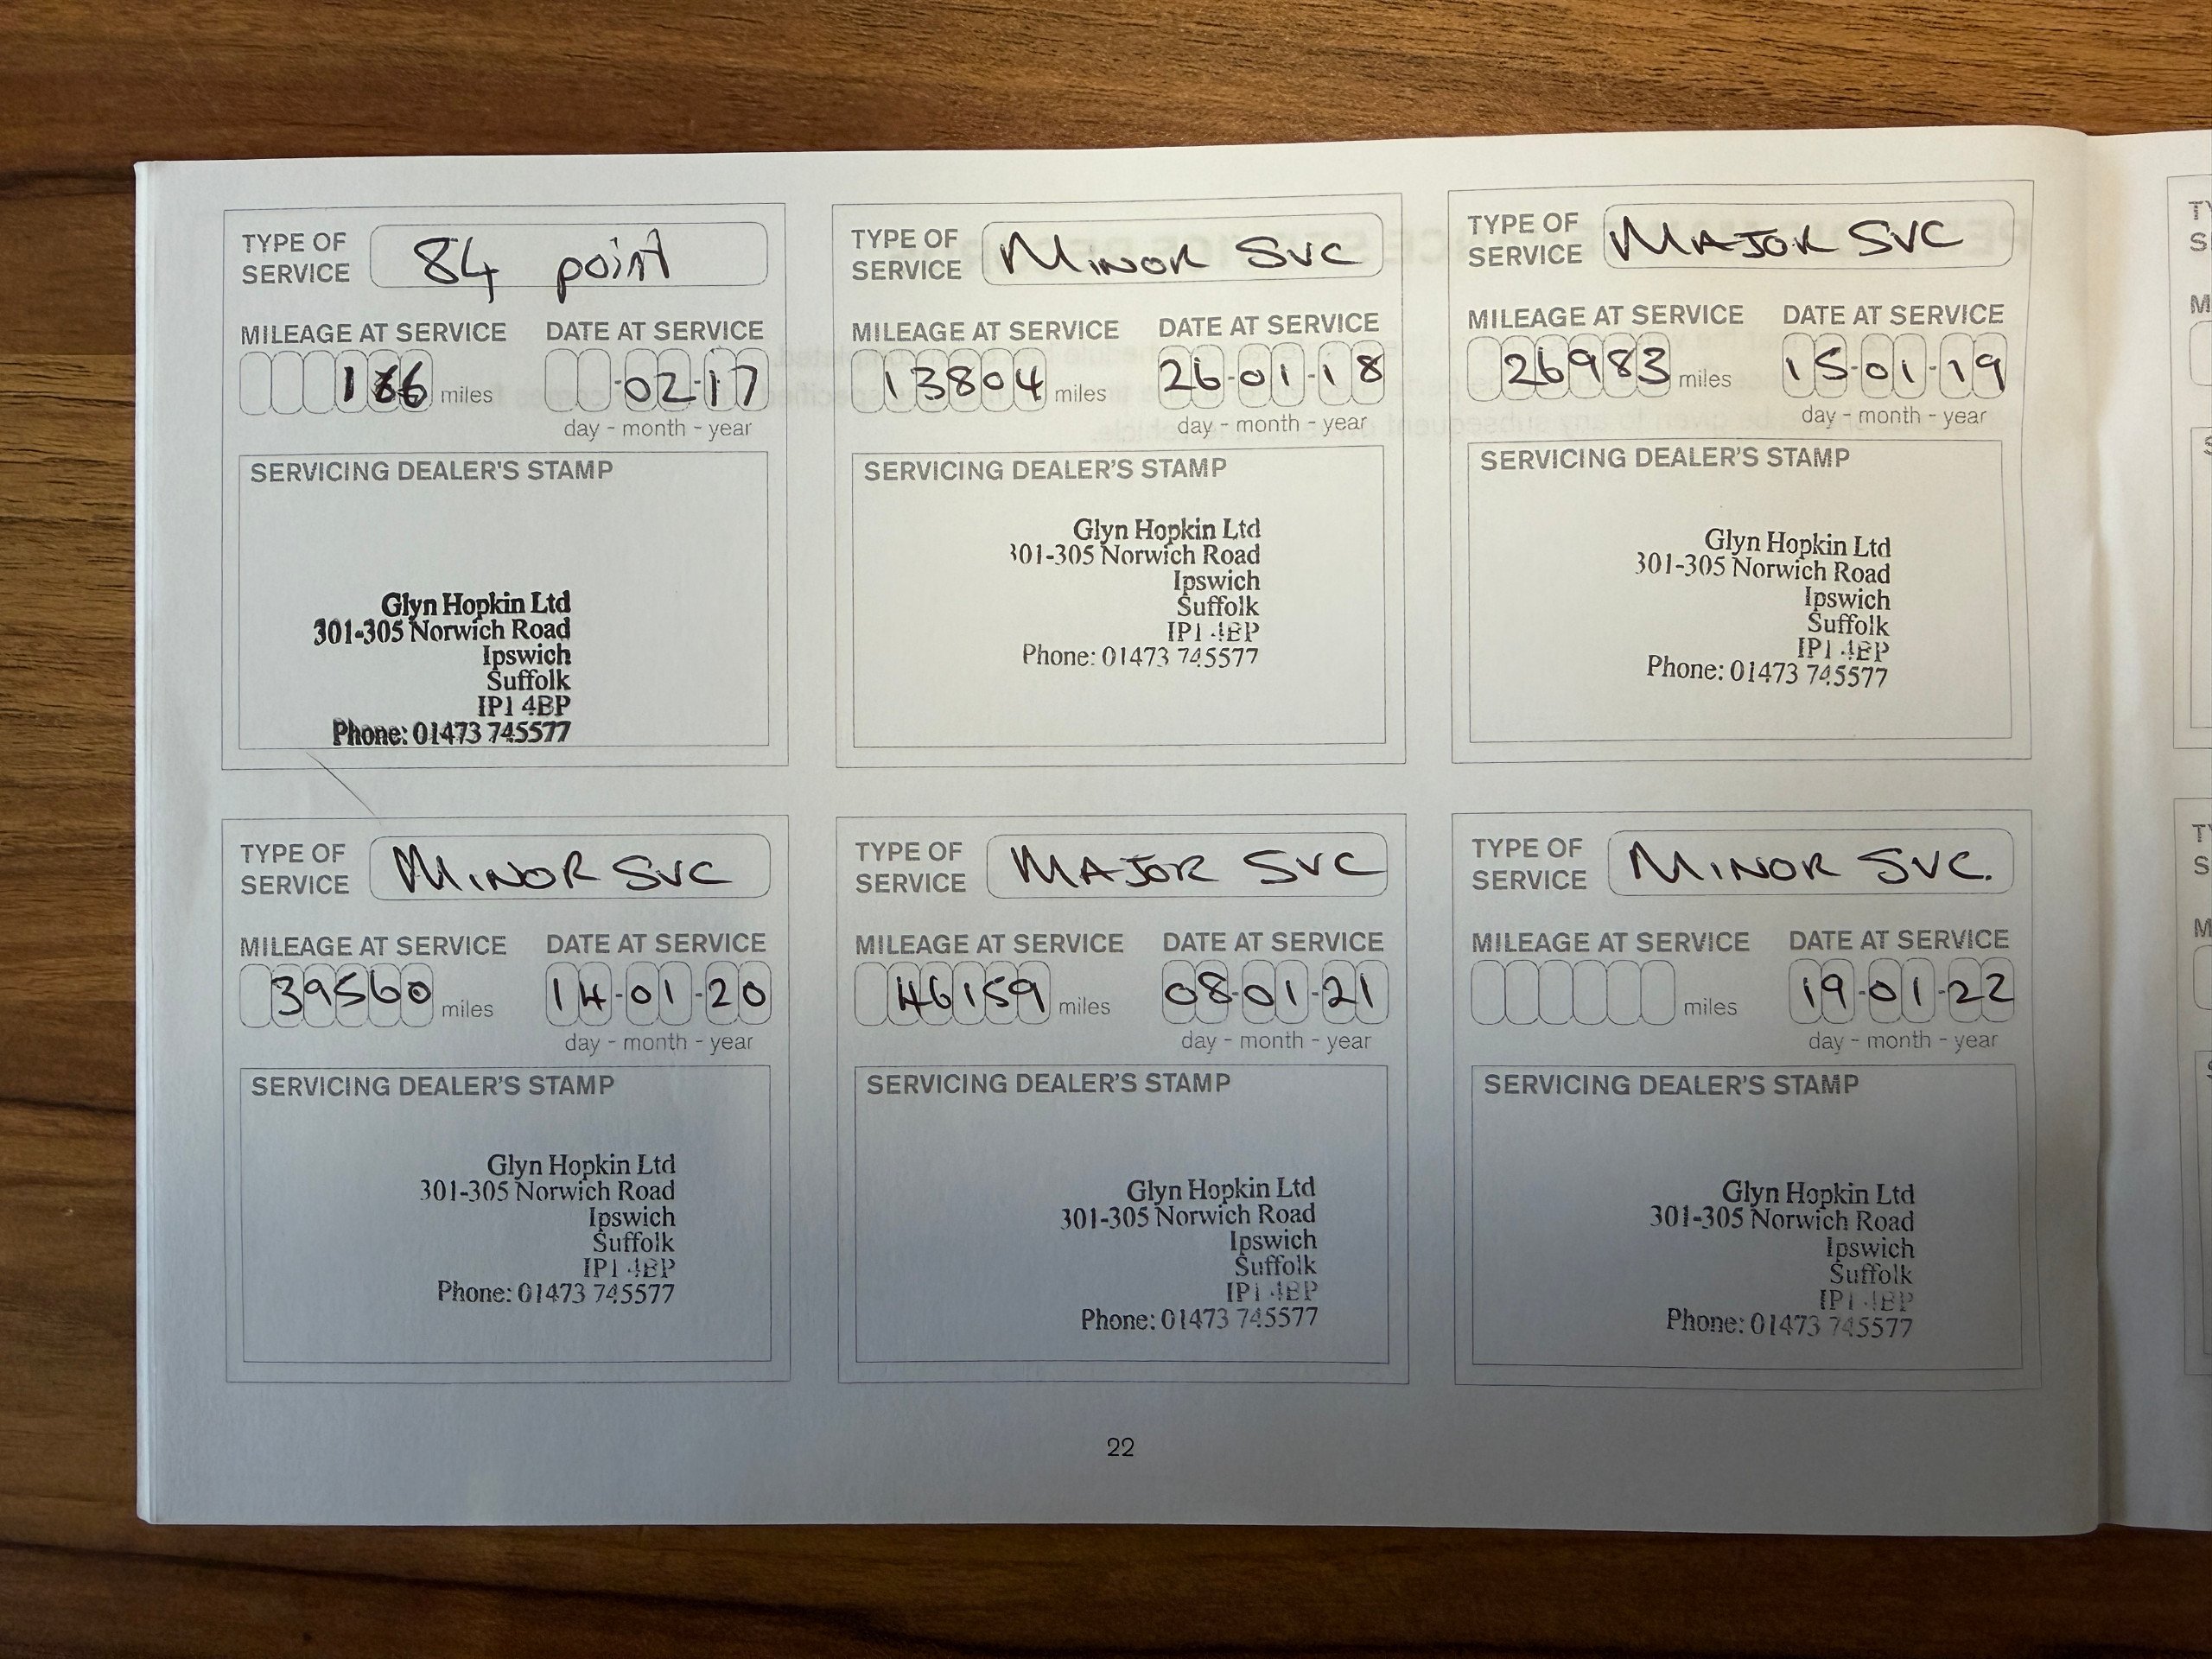 TYPE OF
SERVICE
84 point
MILEAGE AT SERVICE
miles
DATE AT SERVICE
-02-17
day - month - year
SERVICING DEALER'S STAMP
Glyn Hopkin Ltd
301-305 Norwich Road
Ipswich
Suffolk
IP1 4BP
Phone: 01473 745577
TYPE OF
SERVICE
MINOR SVC
MILEAGE AT SERVICE
13804 miles
DATE AT SERVICE
26-01-18
day - month - year
SERVICING DEALER'S STAMP
Glyn Hopkin Ltd
301-305 Norwich Road
Ipswich
Suffolk
IP1 4BP
Phone: 01473 745577
TYPE OF
SERVICE
MAJOR SVC
MILEAGE AT SERVICE
26983 miles
DATE AT SERVICE
15-01-19
day - month - year
SERVICING DEALER'S STAMP
Glyn Hopkin Ltd
301-305 Norwich Road
Ipswich
Suffolk
IP1 4BP
Phone: 01473 745577
TYPE OF
SERVICE
MINOR SVC
MILEAGE AT SERVICE
39560 miles
DATE AT SERVICE
14-01-20
day - month - year
SERVICING DEALER'S STAMP
Glyn Hopkin Ltd
301-305 Norwich Road
Ipswich
Suffolk
IP1 4BP
Phone: 01473 745577
TYPE OF
SERVICE
MAJOR SVC
MILEAGE AT SERVICE
46159 miles
DATE AT SERVICE
08-01-21
day - month - year
SERVICING DEALER'S STAMP
Glyn Hopkin Ltd
301-305 Norwich Road
Ipswich
Suffolk
IP1 4BP
Phone: 01473 745577
TYPE OF
SERVICE
MINOR SVC.
MILEAGE AT SERVICE
miles
DATE AT SERVICE
19-01-22
day - month - year
SERVICING DEALER'S STAMP
Glyn Hopkin Ltd
301-305 Norwich Road
Ipswich
Suffolk
IP1 4BP
Phone: 01473 745577
22